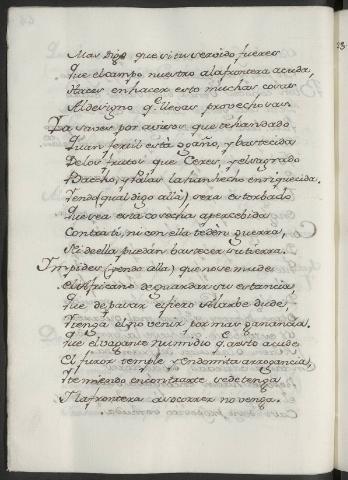 Mas Digo que si tu servido fueres
Que el campo nuestro a la frontera acuda,
Haces en hacer esto muchas cosas
Al designo q llevas provechosas.
Ya sabes por avisos que te han dado
Quan fertil està ogaño, y bastecida
De los frutos que Ceres, y el sagrado
Bacho, y Palas la han hecho enriquecida.
Yendo (qual digo allà) sera estorbado
Que sea esta cosecha apercebida
Contra ti, ni con ella te dèn guerra,
Ni de ella puedan bastecer su tierra.
Impides (yendo alla) que no se mude
el Africano de guardar su estancia,
Que de pasar el fiero alarbe dude,
Y tenga el no venir por mas ganancia.
Que el vagante numidio q a esto acude
El furor temple y indomita arrogancia,
Y temiendo encontrarte se detenga
Y la frontera a socorrer no venga.